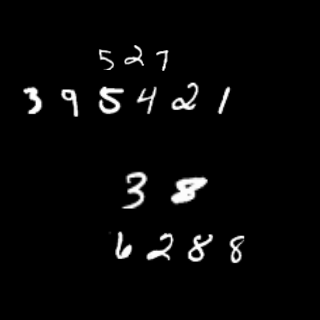 527
395421
38
6288